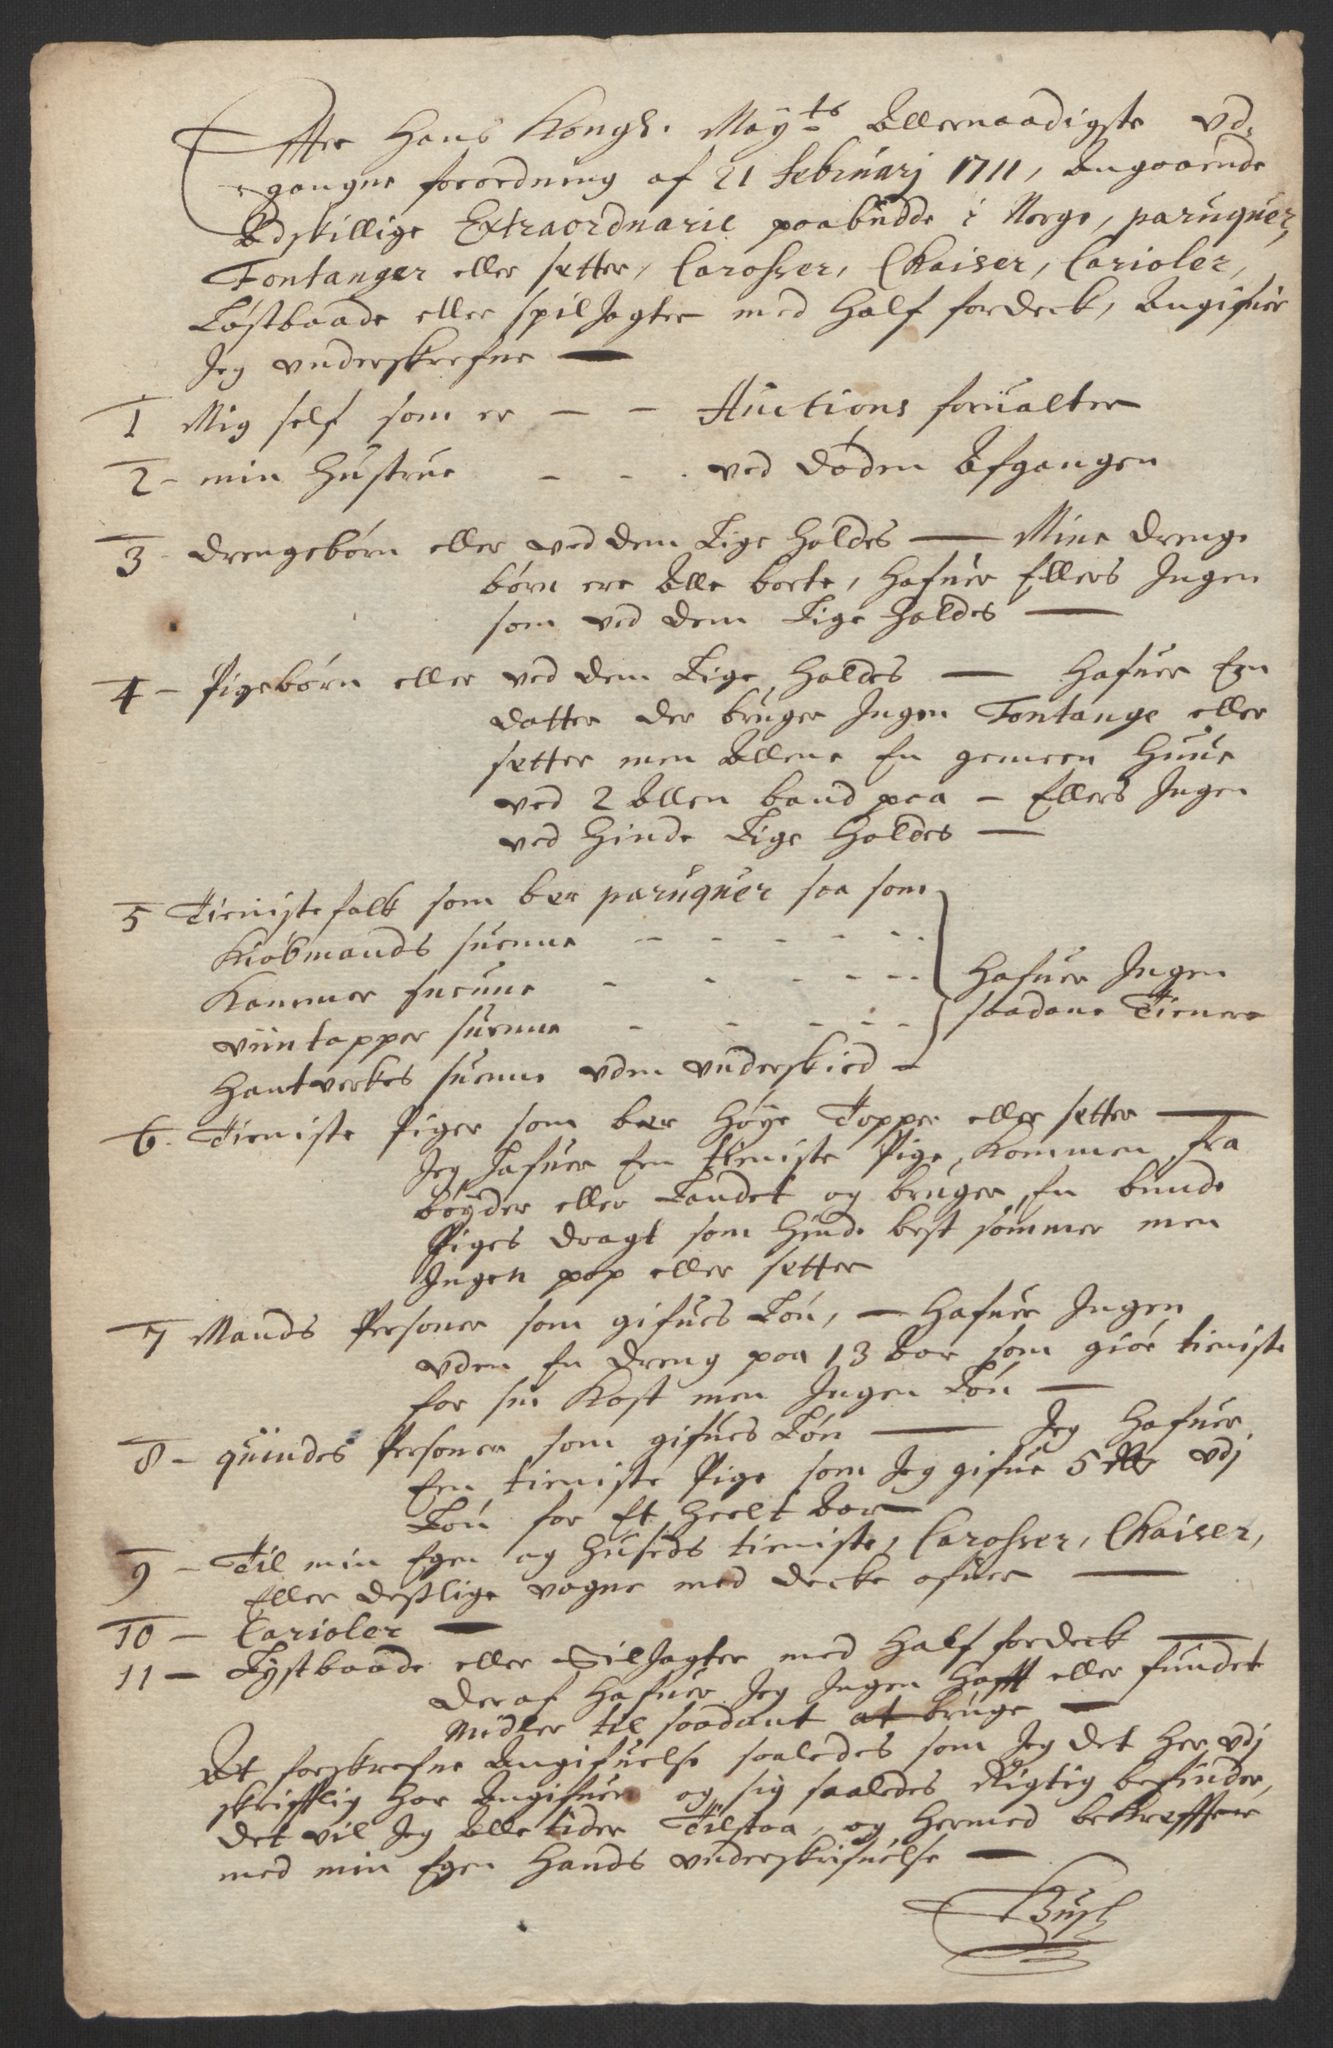 Effter Hans Kongl. May.ts Allernaadigste vd-
gangne forordning af 21 Februarj 1711, Angaaende
Adskillige Extraordnarie paabudde i Norge, paruquer,
Fontanger eller sætter, Carosser, Chaiser, Carioler,
Løstbaade eller spil Jagter med Half fordeck, Angifuer
Jeg vnderskrefne —
1 Mig self som er — — Auctions forualter
2 – min Hustrue – – . ved døden Afgangen
3 – drengebørn eller ved dem Lige holdes — Mine drenge
børn ere Alle borte, Hafuer Ellers Ingen
som ved dem Lige holdes —
4 – Pigebørn eller ved dem Lige holdes — Hafuer Een
datter der bruger Ingen Fontange eller
sætter men Allene En gemeen Huue
ved 2 Allen band paa – Ellers Ingen
ved Hinde Lige Holdes —
5 Tieniste folk som bær paruquer saa som
Kiøbmands suenne – – – – – –
Kammer suenne – – – – – Hafuer Ingen
viintapper suenne – – – – – saadane Tienere
Hantverkes suenne vden vnderskied –
6 – Tieniste Piger som bær Høye Topper eller sætter —
Jeg Hafuer Een tieniste Pige, Kommen fra
bøyder eller Landet og bruger En bunde
Piges dragt som Hinde best sømmer men
Ingen pop eller sætter
7 Mands Personer som gifues Løn, — Hafuer Ingen
vden En dreng paa 13 Aar som giør tieniste
for sin Kost men Ingen Løn —
8 – quindes Personer som gifues Løn — Jeg Hafuer
Een tieniste Pige som Jeg gifue 5 vdj
Løn for Et Heelt Aar
9 – Til min Egen og Huseds tieniste, Carosser, Chaiser,
Eller deslige vogne med decke ofuer —
10 – Carioler —
11 – Lystbaade eller SilJagter med Half fordeck —
deraf Hafuer Jeg Ingen Hafft eller fundet
Midler til saadant at bruge —
At forskrefne Angifuelse saaledes som Jeg det Her vdj
skrifftlig Har Angifuen og sig saaledes Rigtig befinder,
det vil Jeg Alle tider Tilstaa, og Hermed bekreffter
med min Egen Hands vnderskrifuelse —
Bush